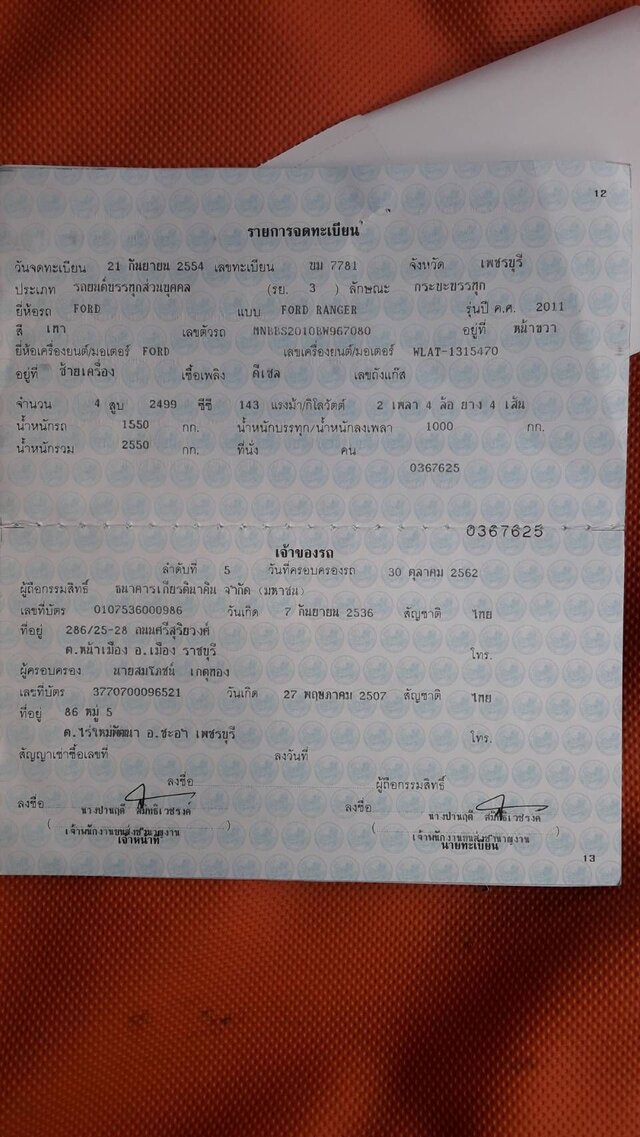 12
รายการจดทะเบียน
วันจดทะเบียน 21 กันยายน 2554 เลขทะเบียน ขม 7781 จังหวัด เพชรบุรี
ประเภท รถยนต์บรรทุกส่วนบุคคล (รย. 3 ) ลักษณะ กระบะบรรทุก
ยี่ห้อรถ FORD แบบ FORD RANGER รุ่นปี ค.ศ. 2011
สี เทา เลขตัวรถ MNBBS2010BW967080 อยู่ที่ หน้าขวา
ยี่ห้อเครื่องยนต์/มอเตอร์ FORD เลขเครื่องยนต์/มอเตอร์ WLAT-1315470
อยู่ที่ ซ้ายเครื่อง เชื้อเพลิง ดีเซล เลขถังแก๊ส
จำนวน 4 สูบ 2499 ซีซี 143 แรงม้า/กิโลวัตต์ 2 เพลา 4 ล้อ ยาง 4 เส้น
น้ำหนักรถ 1550 กก. น้ำหนักบรรทุก/น้ำหนักลงเพลา 1000 กก.
น้ำหนักรวม 2550 กก. ที่นั่ง คน
0367625
0367625
เจ้าของรถ
ลำดับที่ 5 วันที่ครอบครองรถ 30 ตุลาคม 2562
ผู้ถือกรรมสิทธิ์ ธนาคารเกียรตินาคิน จำกัด (มหาชน)
เลขที่บัตร 0107536000986 วันเกิด 7 กันยายน 2536 สัญชาติ ไทย
ที่อยู่ 286/25-28 ถนนศรีสุริยวงศ์
ต.หน้าเมือง อ.เมือง ราชบุรี โทร.
ผู้ครอบครอง นายสมโภชน์ เกตุทอง
เลขที่บัตร 3770700096521 วันเกิด 27 พฤษภาคม 2507 สัญชาติ ไทย
ที่อยู่ 86 หมู่ 5
ต.ไร่ใหม่พัฒนา อ.ชะอำ เพชรบุรี โทร.
สัญญาเช่าซื้อเลขที่ ลงวันที่
ลงชื่อ ผู้ถือกรรมสิทธิ์
ลงชื่อ ลงชื่อ
เจ้าพนักงานขนส่งชำนาญงาน เจ้าพนักงานขนส่งชำนาญงาน
เจ้าหน้าที่ นายทะเบียน
13